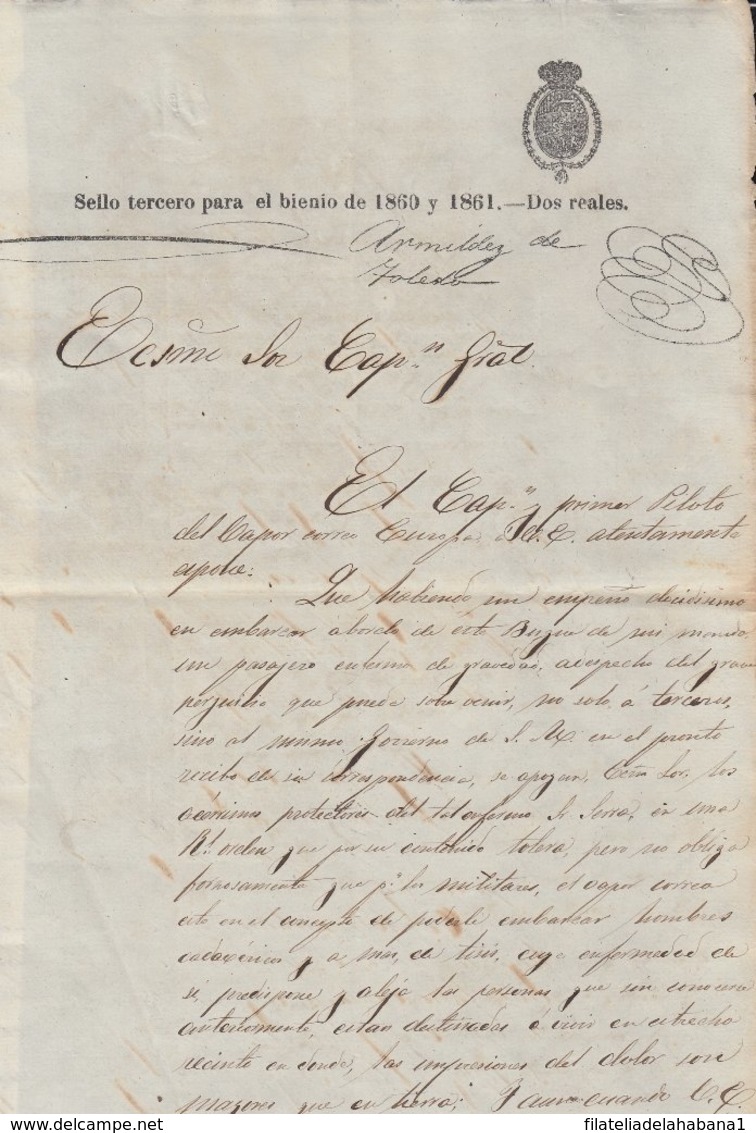 Sello tercero para el bienio de 1860 y 1861.—Dos reales.
Armildez de
Toledo
Ecsmõ Sor Cap.ⁿ Grãl.
El Cap.ⁿ y primer Piloto
del Vapor correo Europa, á V.E. atentamente
espone:
Que habiendo un empeño decidisimo
en embarcar á bordo de este Buque de mi mando,
un pasajero enfermo de gravedad, a despecho del grave
perjuicio que pueda sobrevenir, no solo á terceros,
sino al mismo Gobierno de S. M. en el pronto
recibo de su correspondencia, se apoyan, Ecmo Sor. los
acerrimos protectores del tal enfermo Sr. Serra, en una
R.l orden que por su contenido tolera, pero no obliga
forzosamente que p.a los militares, el vapor correo
esté en el concepto de poderle embarcar hombres
cadavéricos y a mas, de tisis, cuya enfermedad de
sí, predispone y aleja las personas que sin conocerse
anteriormente, estan destinadas á vivir en estrecho
recinto en donde, las impresiones del dolor son
mayores que en tierra; Y aun cuando V.E.
filateliadelahabana1
delcampe.net
filateliadelahabana1